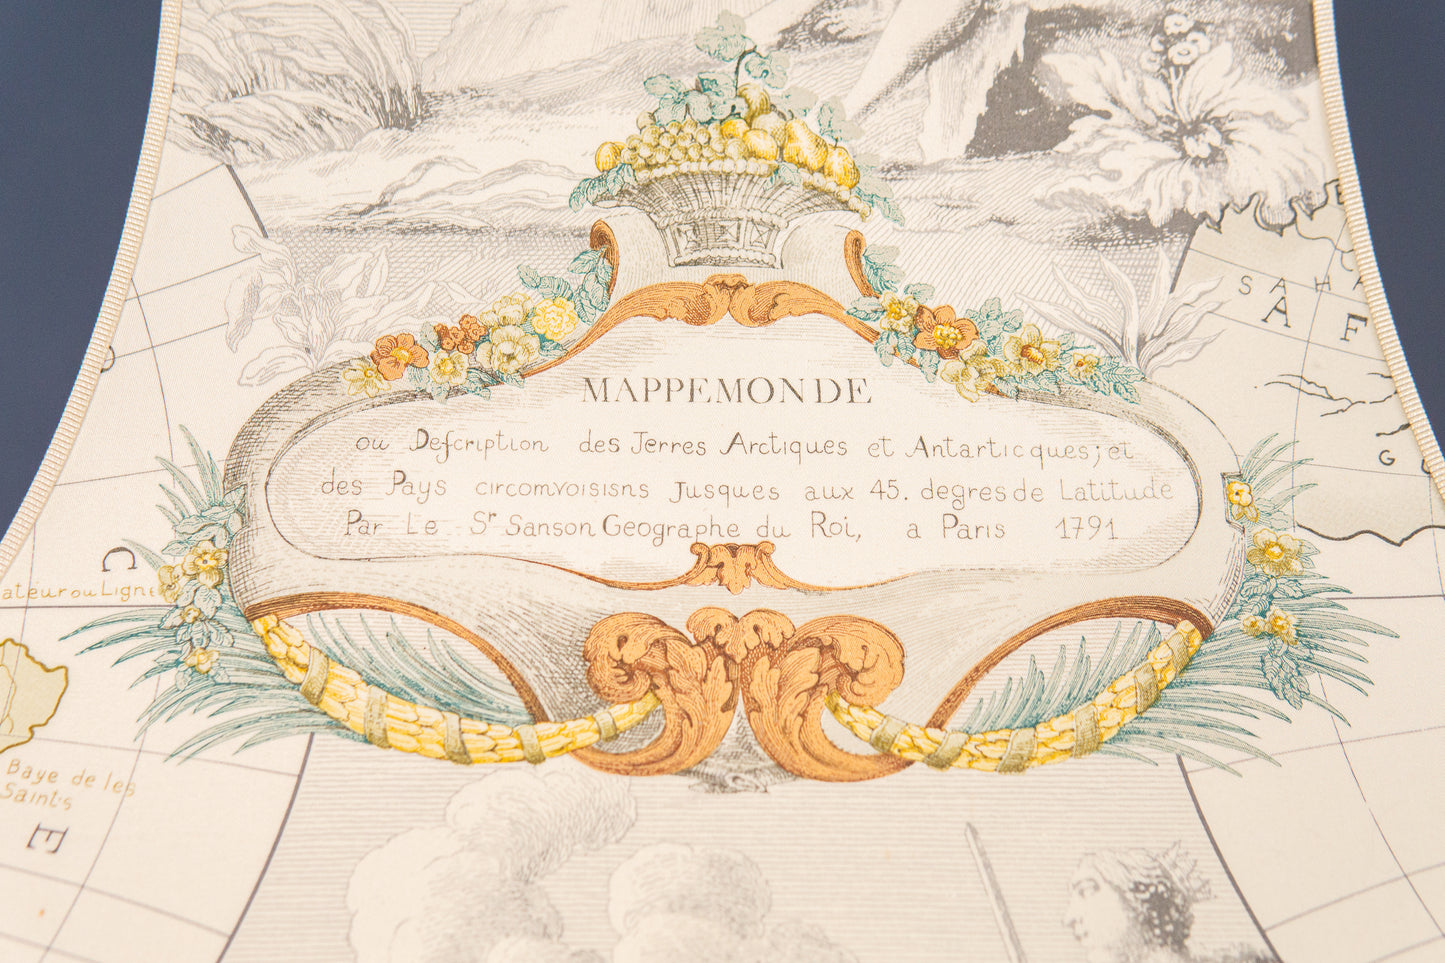 SAHA
A F
MAPPEMONDE
ou Defcription des Terres Arctiques et Antarticques; et
des Pays circomvoisisns Jusques aux 45. degres de Latitude
Par Le Sr Sanson Geographe du Roi, a Paris 1791
G U
C
ateur ou Ligne
Baye de les
Saints
E